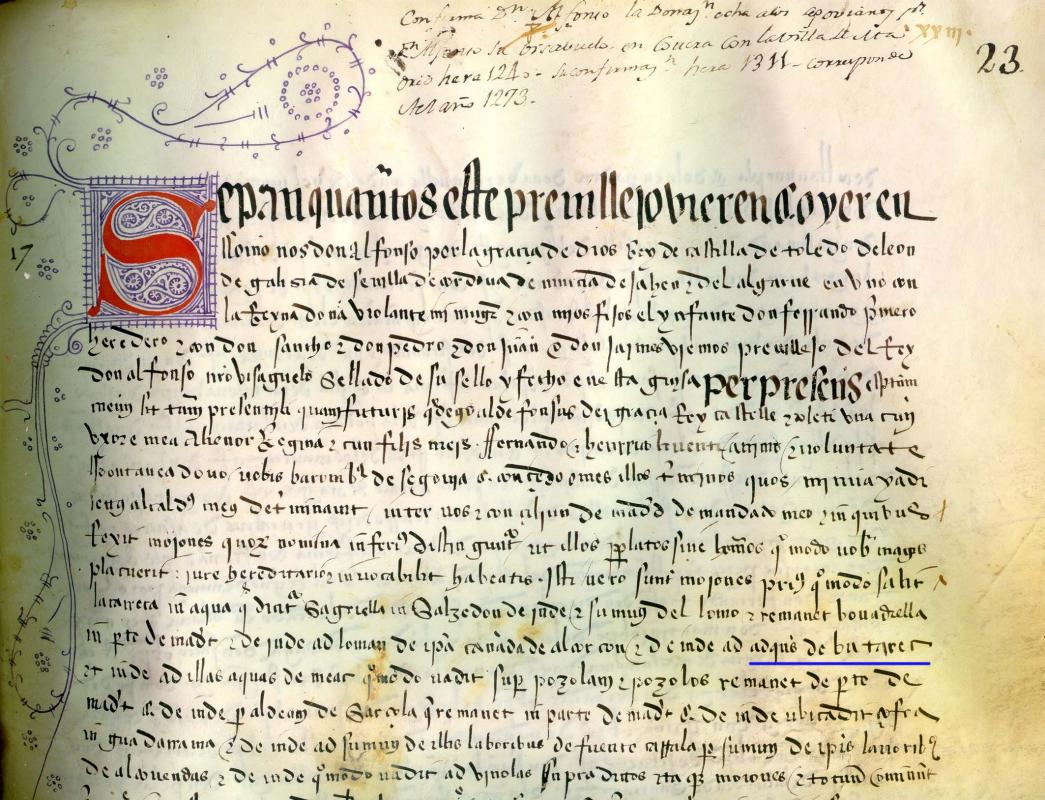 Confirma Dn. Alfonso la Donazn. echa a los
Dn. Alfonso su visabuelo en Covera con la villa
era 1240 - su confirmazn. hera 1311 - corresponde
Al año 1273.
23
17
Sepan quantos este preuillejo vieren & oyeren
como nos don alfonso por la gracia de dios Rey de castilla de toledo de leon
de gallisia de seuilla de cordoua de murcia de jahen & del algarue en vno con
la Reyna doña violante mi muger & con mios fijos el ynfante don ferrando pmero
heredero & con don sancho & don pedro & don juan & don jaimes viemos preuillejo del Rey
don alfonso nro visaguelo sellado de su sello y fecho en esta guysa per presens sptam
meum sit tam presentibus quam futuris qd ego aldefonsus dei gracia Rey castelle & toleti vna cum
vxore mea Alienor Regina & cun filiis meis fernando & henrrico voluntate
spontanea dono vobis de segouia & concedo omes illos tminos quos mi
alcaldus meus detminauit inter vos & conciliun de madd de mandato meo & in quibus
fexit mojones quorum nomina inferius distinguntur ut illos populatos siue hermos quomodo vobis magis
placuerit iure hereditario inrevocabilit habeatis. Isti vero sunt mojones primus quomodo salit
la carrera in aqua que dicitur Sagriella in Salzedon deinde & sumun del lomo & remanet bouadiella
in pte de madt & deinde ad loman de ipa cañada de alcorcon & deinde ad adqus de butarec
et inde ad illas aquas de meac quomodo vadit super pozolam & pozolos remanet de pte de
madt & deinde p aldeam de Sarcola q remanet in parte de madt & deinde ubi cadit cofra
in guadarrama & deinde ad sumum de illis laboribus de fuente p sumum de ipis laboribus
de alcouendas & deinde quomodo uadit ad vinolas supradictos itaque mojones & totum